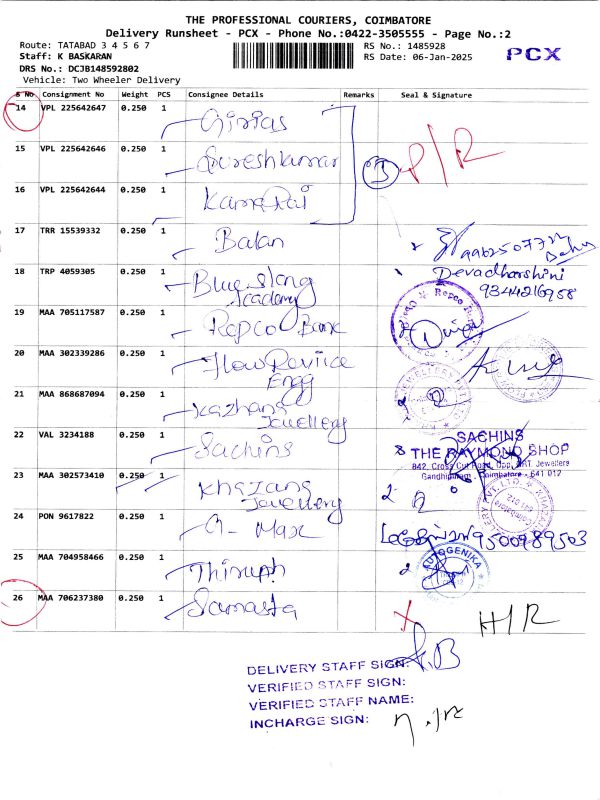 THE PROFESSIONAL COURIERS, COIMBATORE
Delivery Runsheet - PCX - Phone No.:0422-3505555 - Page No.:2
Route: TATABAD 3 4 5 6 7
RS No.: 1485928
Staff: K BASKARAN
RS Date: 06-Jan-2025
PCX
DRS No.: DCJB148592802
Vehicle: Two Wheeler Delivery
S No Consignment No Weight PCS Consignee Details Remarks Seal & Signature
14 VPL 225642647 0.250 1 Girias
15 VPL 225642646 0.250 1 Sureshkumar B P/R
16 VPL 225642644 0.250 1 Kamaraj
17 TRR 15539332 0.250 1 Balan
18 TRP 4059305 0.250 1 Blue Slang Academy Devadharshini 9344216958
19 MAA 705117587 0.250 1 Repco Bank
20 MAA 302339286 0.250 1 Engg
21 MAA 868687094 0.250 1 Kazhana Jewellery
22 VAL 3234188 0.250 1 Sachins
SACHINS
THE RAYMOND SHOP
842, Cross Cut Road, Opp. KRT. Jewellers
Gandhipuram - Coimbatore - 641 012
23 MAA 302573410 0.250 1 Khazana Jewellery
24 PON 9617822 0.250 1 G-Max 9500989503
25 MAA 704958466 0.250 1 Thiruph
AUTOGENIKA
26 MAA 706237380 0.250 1 Samasta H/R
DELIVERY STAFF SIGN: K.B
VERIFIED STAFF SIGN:
VERIFIED STAFF NAME:
INCHARGE SIGN: